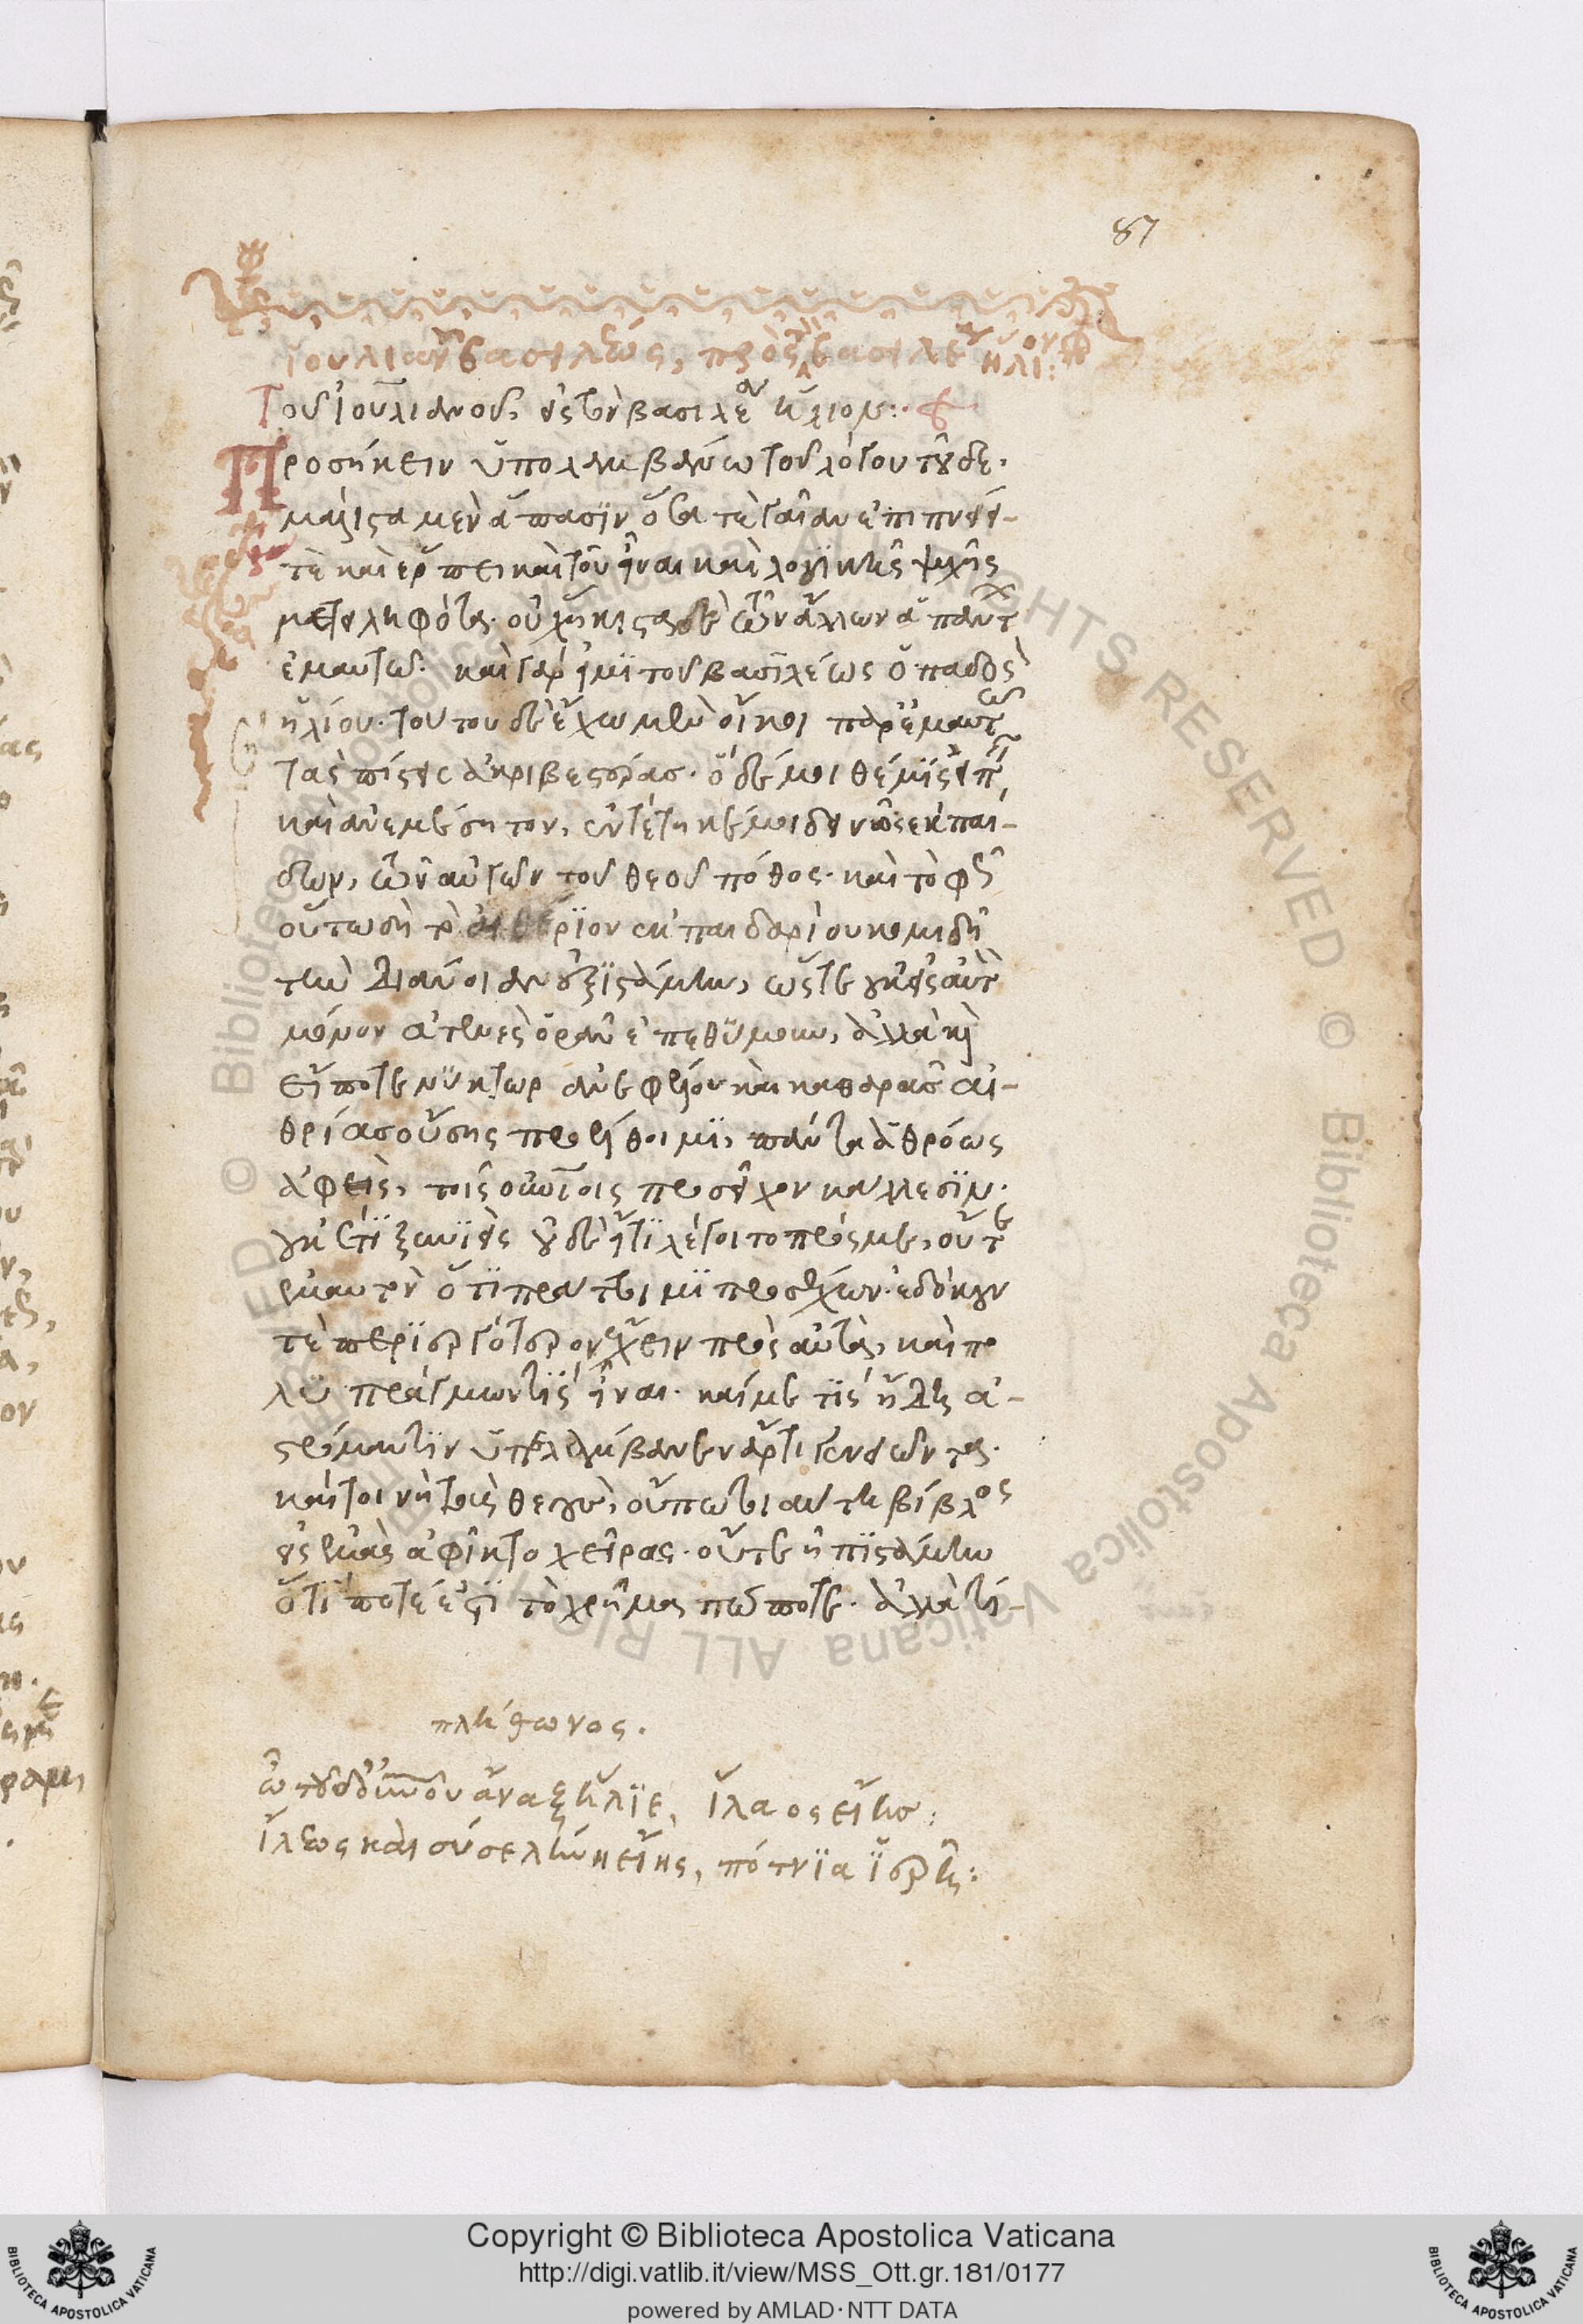 87
Ἰουλιανοῦ βασιλέως, πρὸς τὸν βασιλέα ἥλιον:
Τοῦ Ἰουλιανοῦ, εἰς τὸν βασιλέα ἥλιον:·
Προσήκειν ὑπολαμβάνω τοῦ λόγου τοῦδε.
μάλιστα μὲν ἅπασϊν ὅσα τὲ γαῖαν ἐπιπνεί-
τὲ καὶ ἕρπει καὶ τοῦ εἶναι καὶ λογϊκῆς ψυχῆς
μετειληφότα. οὐχ ἥκιστα δὲ τῶν ἄλλων ἁπάντ
ἐμαυτῶ. καὶ γάρ εἰμϊ τοῦ βασϊλέως ὀπαδὸς
ἡλίου. τούτου δὲ ἔχω μὲν οἴκοι παρ' ἐμαυτῶ
τὰς πίστεις ἀκριβεστέρας. ὃ δέ μοι θέμϊς εἰπεῖν
καὶ ἀνεμέσητον, ἐντέτηκέ μοι δεινὸς ἐκ παί-
δων, τῶν αὐγῶν τοῦ θεοῦ πόθος. καὶ τὸ φῶς
οὕτω δὴ τὸ αἰθέρϊον ἐκ παιδαρίου κομιδῆ
τὴν διάνοιαν ἐξϊστάμην, ὥστε οὐκ εἰς αὐτὸ
μόνον ἀτενὲς ὁρᾶν ἐπεθύμουν, ἀλλὰ καὶ
εἴ ποτε νύκτωρ ἀνέφελον καὶ καθαρᾶς αἰ-
θρίας οὔσης προέλθοιμϊ, πάντα ἀθρόως
ἀφεὶς, τοῖς οὐρανίοις προσεῖχον κάλλεσϊν.
οὐκ ἔτϊ ξυνϊεὶς οὐδὲ εἴ τϊ λέγοι το πρός με, οὔτε
ἐμαυτὸν ὅ τϊ πράττοιμϊ προσέχων. ἐδόκουν
τὲ περϊεργότερον ἔχειν πρὸς αὐτὰ, καὶ πο
λϋπράγμων τϊς εἶναι. καί με τϊς ἤδη ἀ-
στρόμαντϊν ὑπέλαβεν ἄρτι γενειῶντα.
καίτοι μὴ τοὺς θεοὺς, οὔπω τοιαύτη βίβλος
εἰς ἐμὰς ἀφῖκτο χεῖρας. οὔτε ἠπϊστάμην
ὅ τϊ ποτέ ἐστϊ τὸ χρῆμα πώποτε. ἀλλὰ τί-
πλήθωνος.
ὦ τοῦδ' οὐρανοῦ ἄναξ ἥλϊε, ἵλαος εἴης:
ἵλεως καὶ σύ σελήνη εἴης, πότνϊα ἱερή:
Copyright © Biblioteca Apostolica Vaticana
http://digi.vatlib.it/view/MSS_Ott.gr.181/0177
powered by AMLAD·NTT DATA